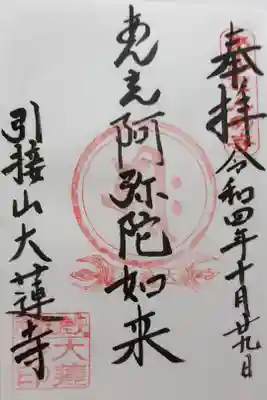 奉拝 令和四年十月廿九日
安産阿弥陀如来
引接山大蓮寺